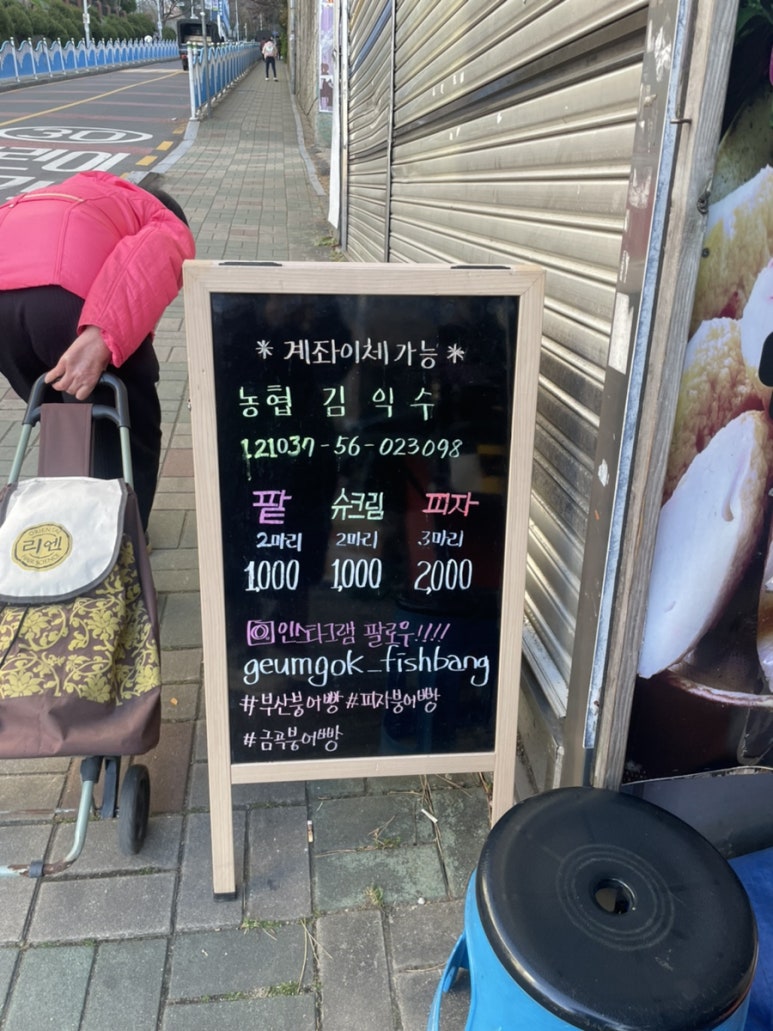 * 계좌이체가능 *
농협 김익수
121037-56-023098
팥 슈크림 피자
2마리 2마리 3마리
1,000 1,000 2,000
인스타그램 팔로우!!!!
geumgok_fishbang
#부산붕어빵 #피자붕어빵
#금곡붕어빵
리엔
30